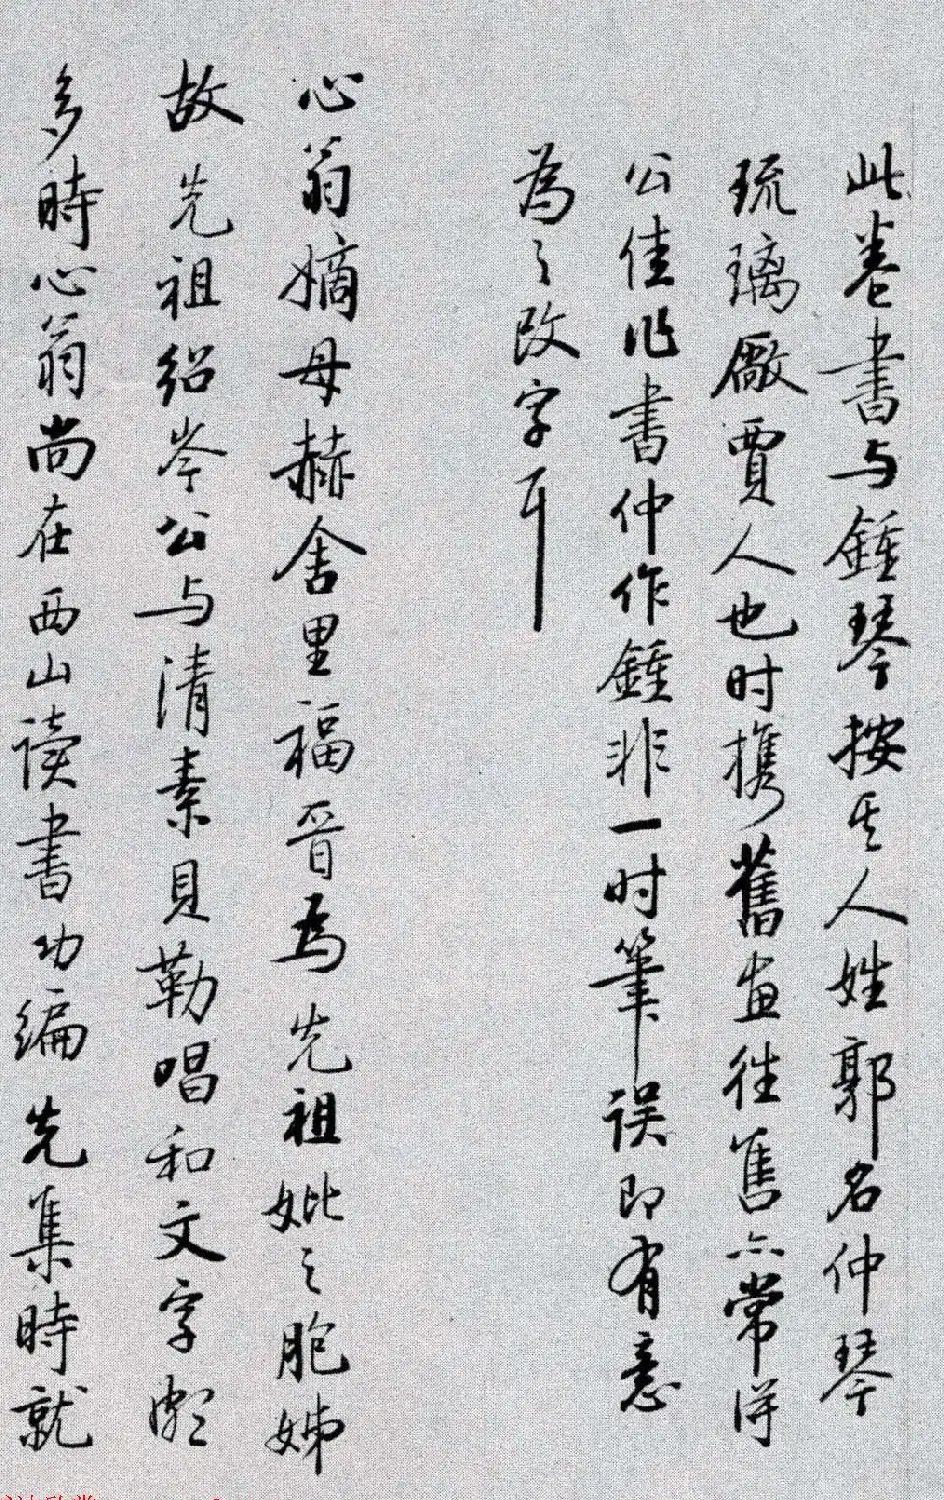 此卷書与鍾琴按其人姓郭名仲琴
琉璃廠賈人也时携舊畫往售亦常得
公佳作書仲作鍾非一时筆误即有意
為之改字耳
心翁嫡母赫舍里福晋為先祖妣之胞姊
故先祖绍岑公与清素貝勒唱和文字頗
多時心翁尚在西山读書功编先集時就